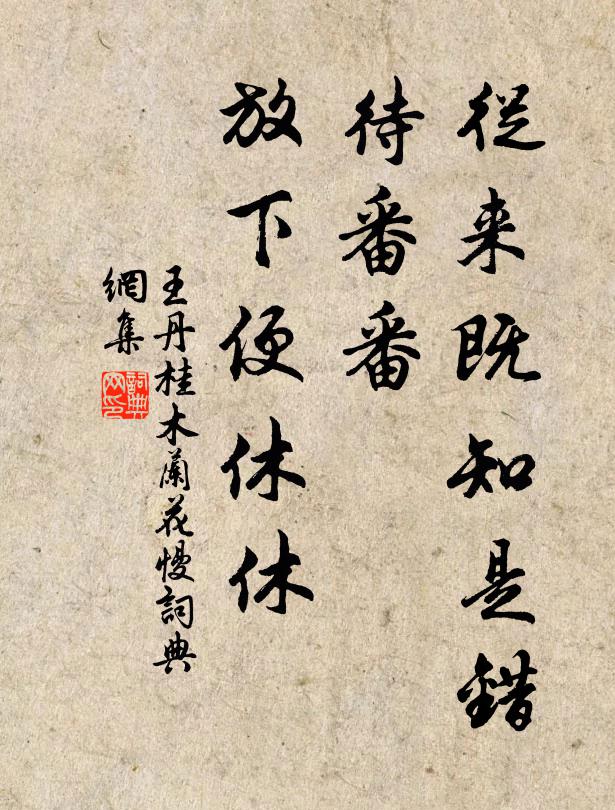 從来既知是錯
待番番
放下便休休
王丹桂木蘭花慢詞典
網集
詞典
网印